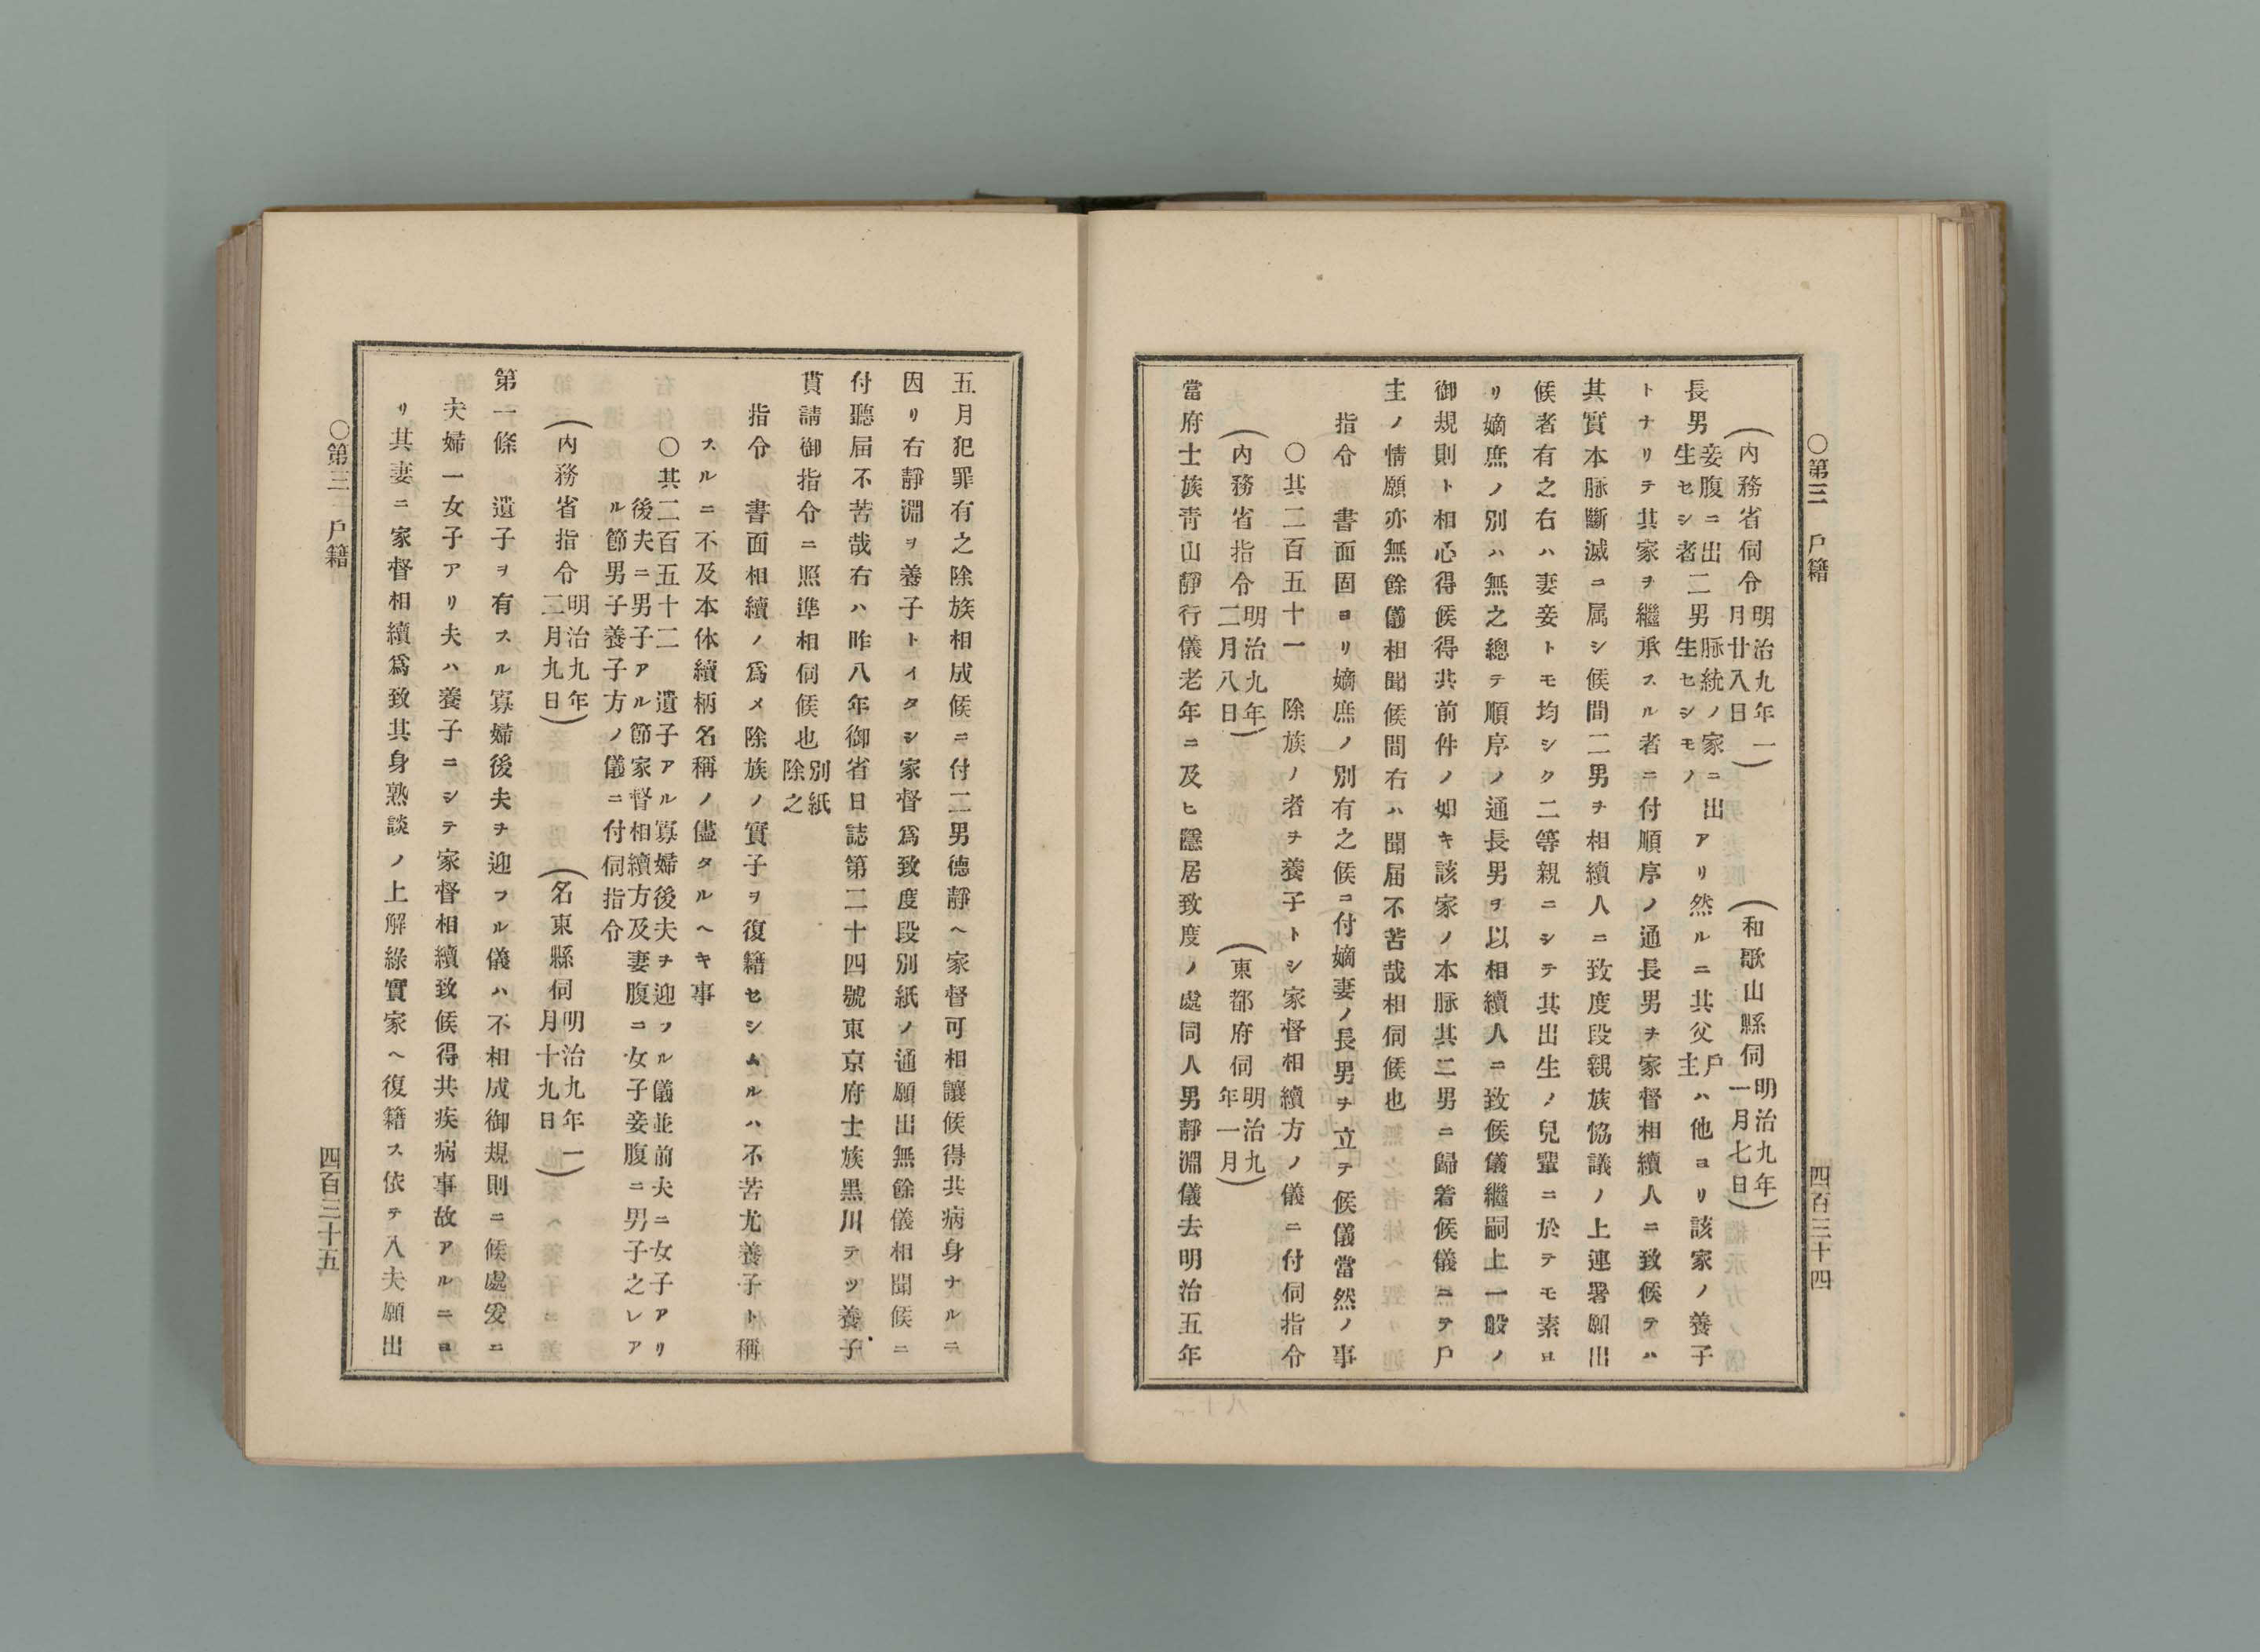 ○第三　戶籍
四百三十四
（內務省伺令明治九年一月廿八日）　（和歌山縣伺明治九年一月七日）
長男妾腹ニ出生セシ者二男脈統ノ家ニ出生セシモノアリ然ルニ其父戶主ハ他ヨリ該家ノ養子
トナリテ其家ヲ繼承スル者ニ付順序ノ通長男ヲ家督相續人ニ致候テハ
其實本脈斷滅ニ属シ候間二男ヲ相續人ニ致度段親族恊議ノ上連署願出
候者有之右ハ妻妾トモ均シク二等親ニシテ其出生ノ兒輩ニ於テモ素ヨ
リ嫡庶ノ別ハ無之總テ順序ノ通長男ヲ以相續人ニ致候儀繼嗣上一般ノ
御規則ト相心得候得共前件ノ如キ該家ノ本脈其二男ニ歸着候儀ニテ戶
主ノ情願亦無餘儀相聞候間右ハ聞届不苦哉相伺候也
指令　書面固ヨリ嫡庶ノ別有之候ニ付嫡妻ノ長男ヲ立テ候儀當然ノ事
○其二百五十一　除族ノ者ヲ養子トシ家督相續方ノ儀ニ付伺指令
（內務省指令明治九年二月八日）　（東都府伺明治九年一月）
當府士族靑山靜行儀老年ニ及ヒ隱居致度ノ處同人男靜淵儀去明治五年
五月犯罪有之除族相成候ニ付二男德靜ヘ家督可相讓候得共病身ナルニ
因リ右靜淵ヲ養子トイタシ家督爲致度段別紙ノ通願出無餘儀相聞候ニ
付聽届不苦哉右ハ昨八年御省日誌第二十四號東京府士族黒川テツ養子
貰請御指令ニ照準相伺候也別紙除之
指令　書面相續ノ爲メ除族ノ實子ヲ復籍セシムルハ不苦尤養子ト稱
スルニ不及本体續柄名稱ノ儘タルヘキ事
○其二百五十二　遺子アル寡婦後夫ヲ迎フル儀並前夫ニ女子アリ
後夫ニ男子アル節家督相續方及妻腹ニ女子妾腹ニ男子之レア
ル節男子養子方ノ儀ニ付伺指令
（內務省指令明治九年三月九日）　（名東縣伺明治九年一月十九日）
第一條　遺子ヲ有スル寡婦後夫ヲ迎フル儀ハ不相成御規則ニ候處爰ニ
夫婦一女子アリ夫ハ養子ニシテ家督相續致候得共疾病事故アルニヨ
リ其妻ニ家督相續爲致其身熟談ノ上解緣實家ヘ復籍ス依テ入夫願出
○第三　戶籍
四百三十五